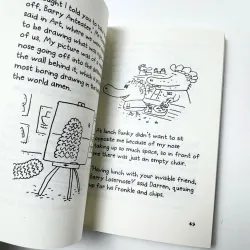 ought I told you to
off, Barry Anteater," M
said in Art, where we
to be drawing what was
of us. My picture was of
nose going off into the
the wall behind it, which
most boring drawing in
the world amen.
At lunch Bunky didn't want to sit
opposite me because of my nose
taking up so much space, so in front of
me there was just an empty chair.
"Having lunch with your invisible friend,
Barry Loserness?" said Darren, queuing
for his Fronkle and chips.
69